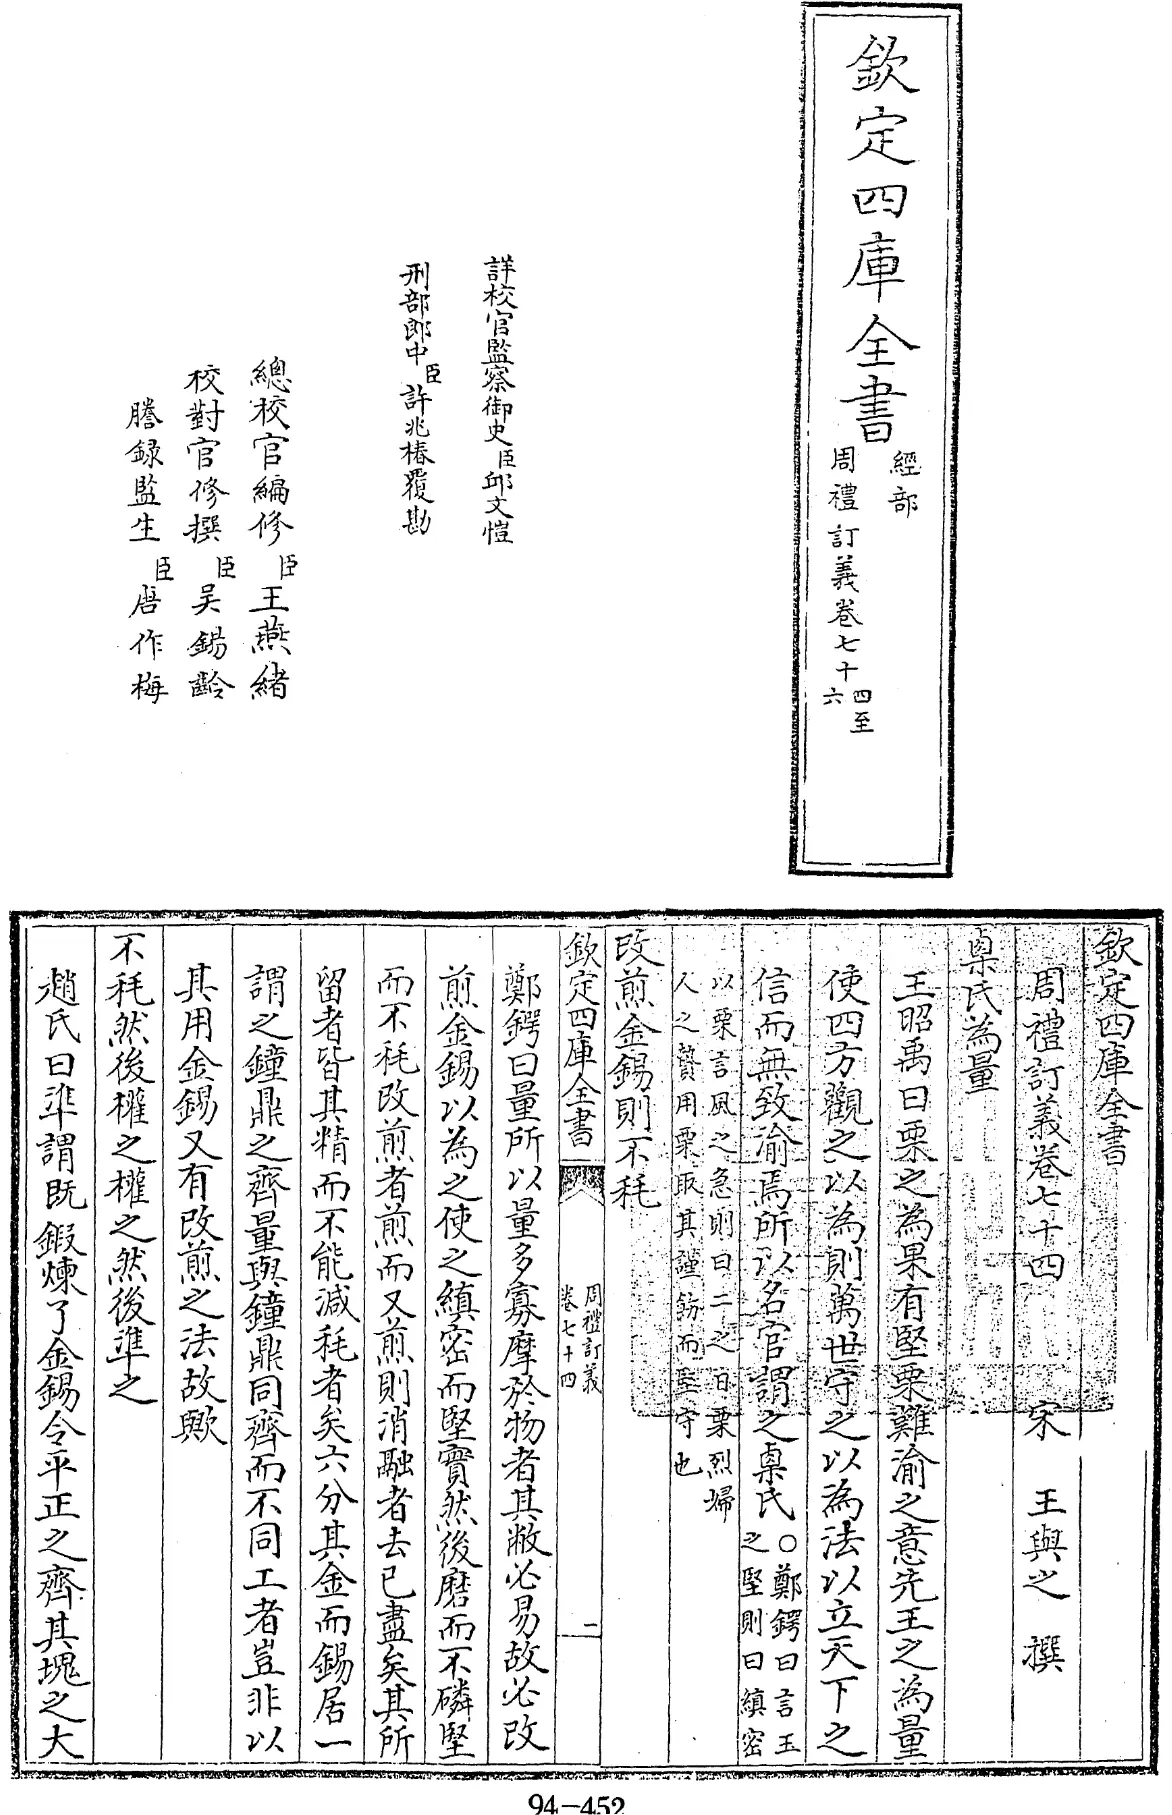 欽定四庫全書
經部
周禮訂義卷七十
四至
六
詳校官監察御史臣邱文愷
刑部郎中臣許兆椿覆勘
總校官編修臣王燕緒
校對官修撰臣吴錫齡
謄錄監生臣唐作梅
欽定四庫全書
周禮訂義卷七十四 宋 王與之 撰
㮚氏為量
王昭禹曰栗之為果有堅栗難渝之意先王之為量
使四方觀之以為則萬世守之以為法以立天下之
信而無致渝焉所以名官謂之㮚氏
○鄭鍔曰言玉
之堅則曰縝密
以栗言風之急則曰二之日栗烈婦
人之贄用栗取其謹飭而堅守也
改煎金錫則不耗
欽定四庫全書
周禮訂義
卷七十四
二
鄭鍔曰量所以量多寡摩於物者其敝必易故必改
煎金錫以為之使之縝密而堅實然後磨而不磷堅
而不耗改煎者煎而又煎則消融者去已盡矣其所
留者皆其精而不能減耗者矣六分其金而錫居一
謂之鐘鼎之齊量與鐘鼎同齊而不同工者豈非以
其用金錫又有改煎之法故歟
不耗然後權之權之然後準之
趙氏曰準謂既鍜煉了金錫令平正之齊其塊之大
94-452